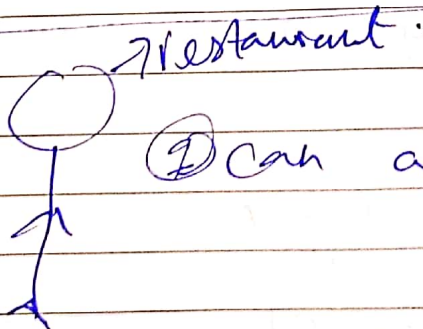 restaurant.
① can a